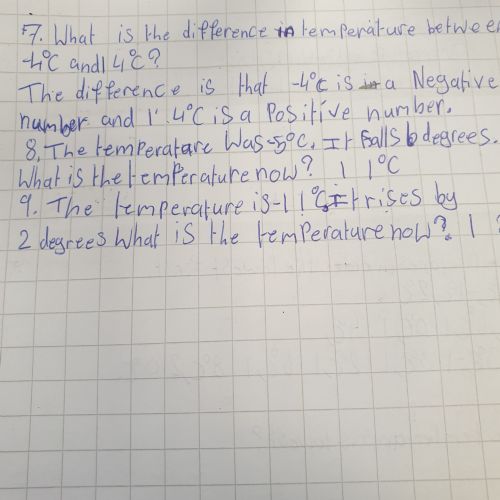 7. What is the difference in temperature between
-4°C and 14°C?
The difference is that -4°C is a Negative
number and 14°C is a Positive number.
8. The temperature Was -5°C. It falls 6 degrees.
What is the temperature now? 11°C
9. The temperature is -11°C. It rises by
2 degrees What is the temperature now? 1